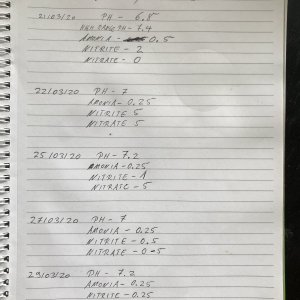 21/03/20 PH - 6.8
HIGH RANGE PH - 7.4
AMONIA - 0.5
NITRITE - 2
NITRATE - 0
22/03/20 PH - 7
AMONIA - 0.25
NITRITE 5
NITRATE 5
25/03/20 PH - 7.2
AMONIA - 0.25
NITRITE - 1
NITRATE - 5
27/03/20 PH - 7
AMONIA - 0.25
NITRITE - 0.5
NITRATE - 0-5
29/03/20 PH - 7.2
AMONIA - 0.25
NITRITE - 0.25